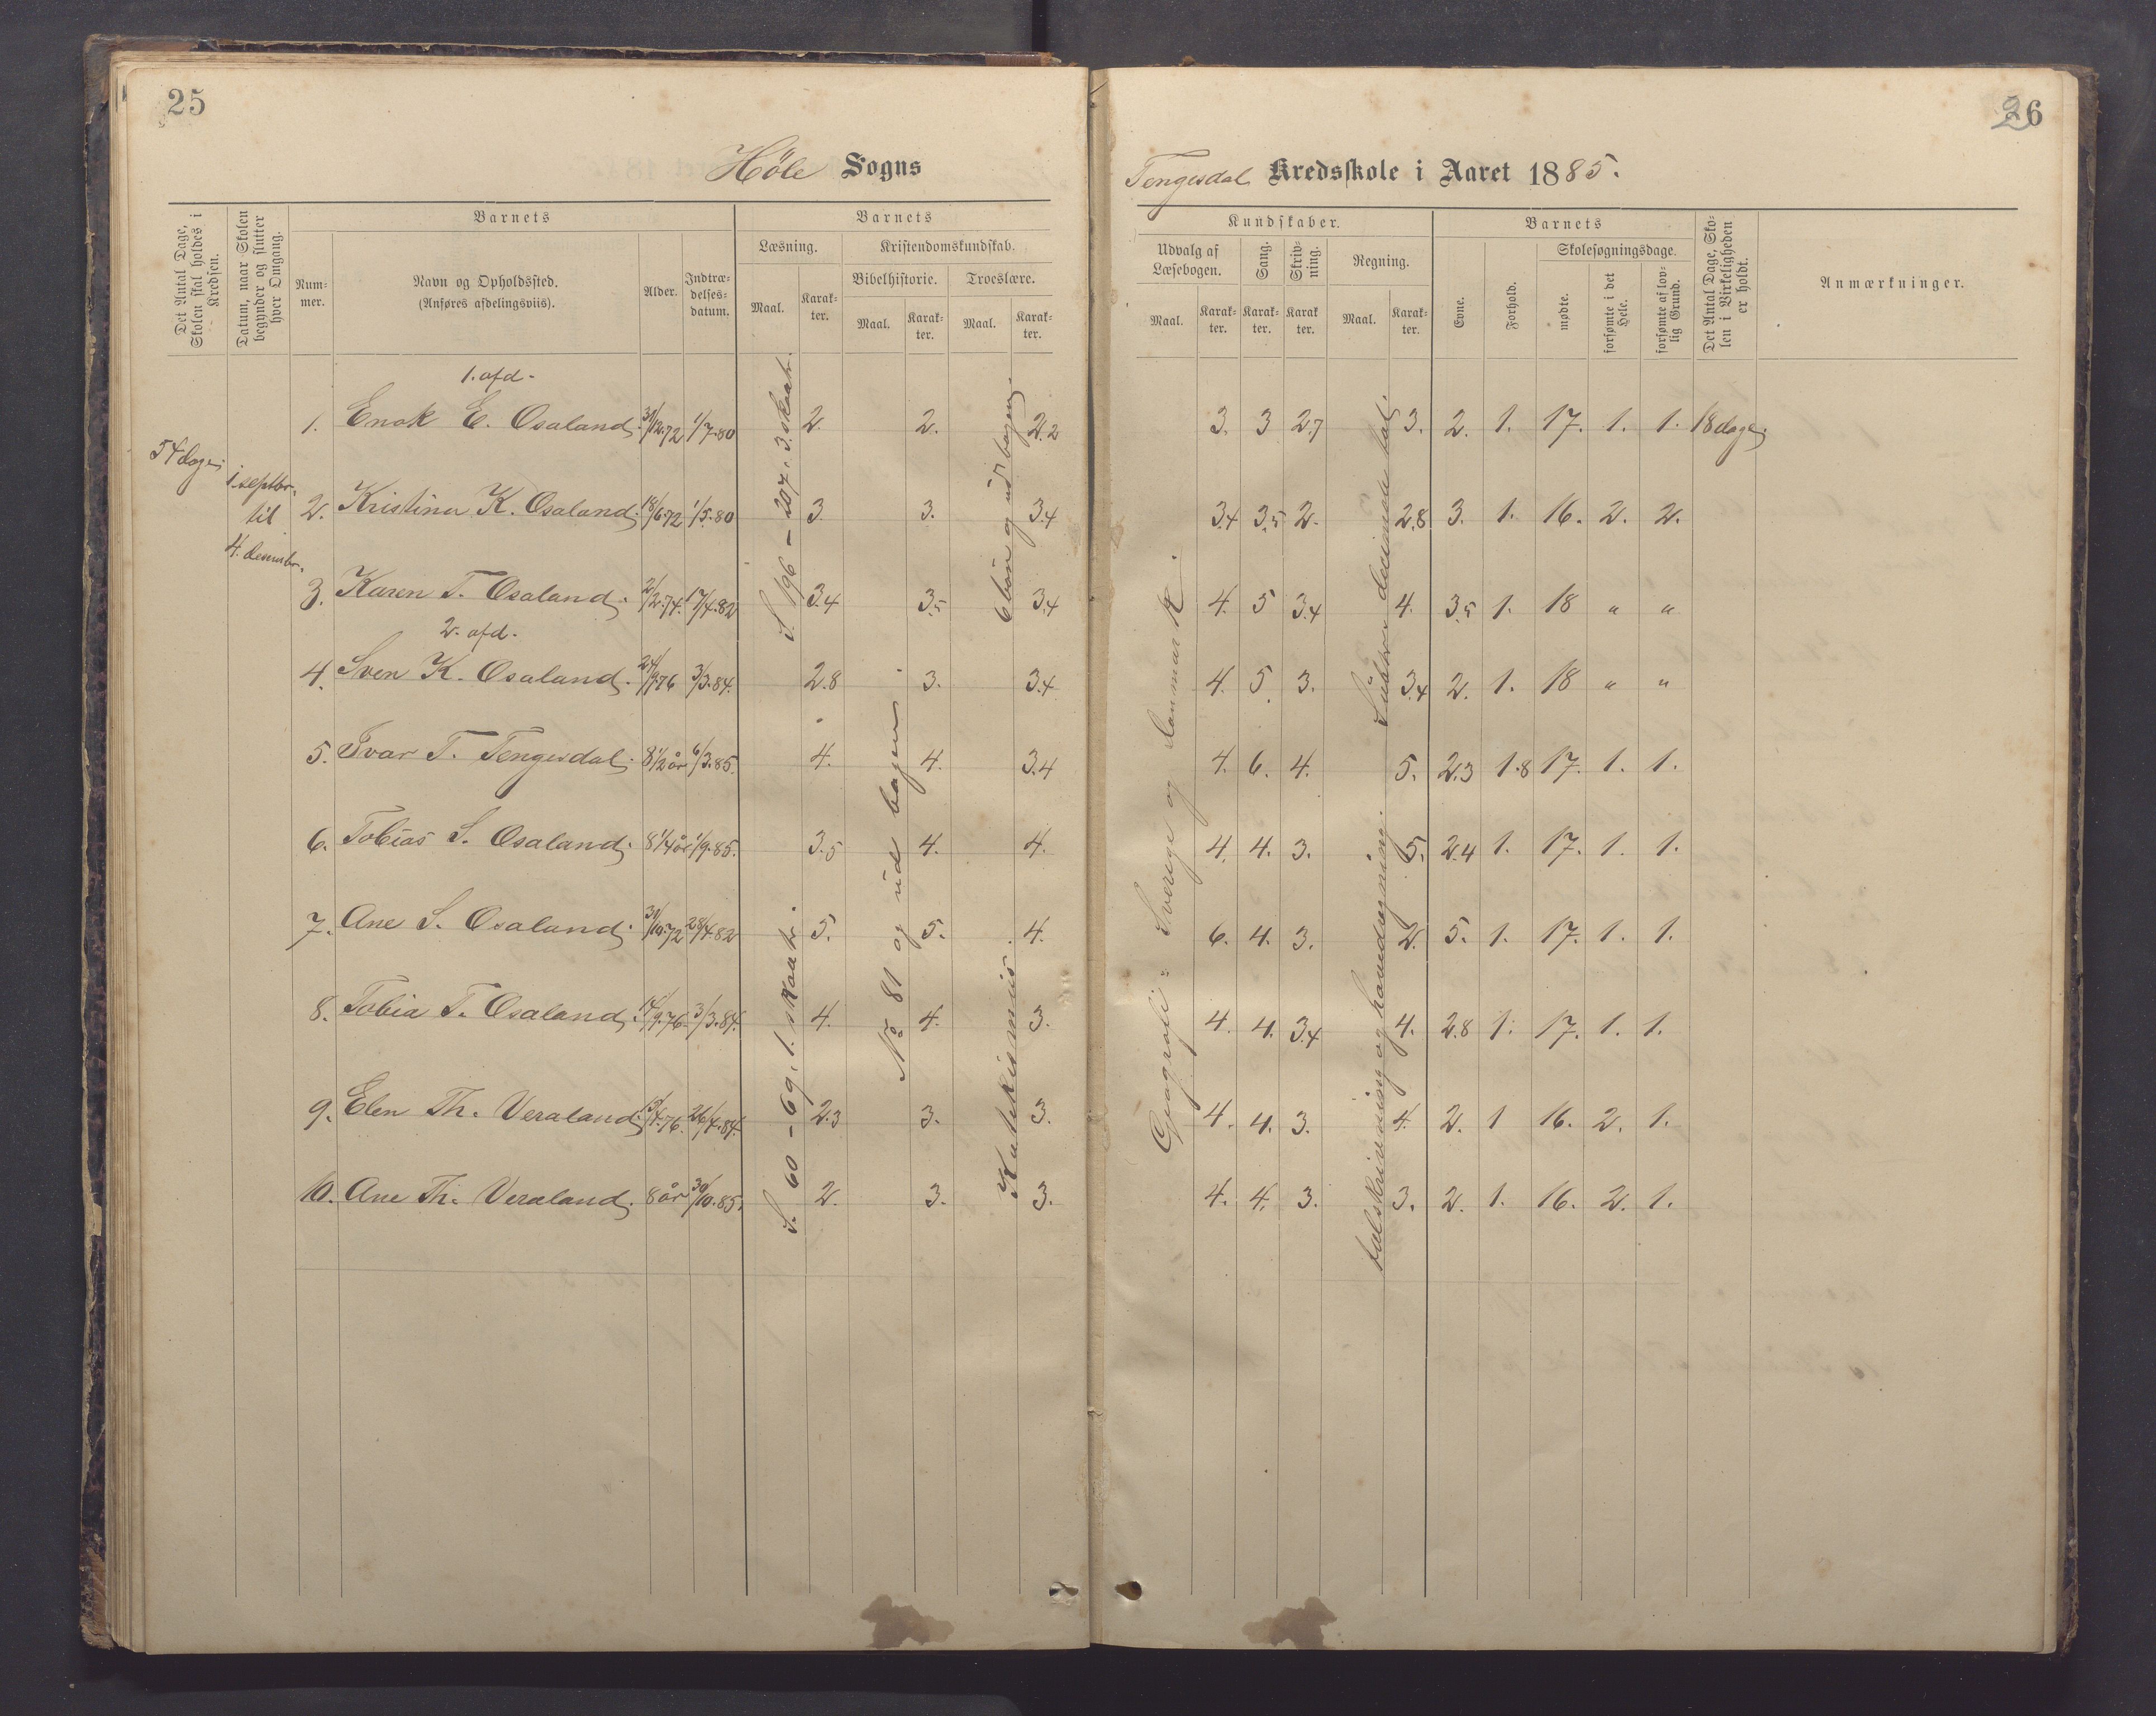 25
26
Höle Sogns
Tengesdal Kredsskole i Aaret 1885.
Det Antal Dage, Skolen skal holdes i Kredsen.
Datum, naar Skolen begynder og slutter hver Omgang.
Barnets
Num-
mer.
Navn og Opholdssted.
(Anføres afdelingsviis).
Alder.
Indtræ-
delses-
datum.
Barnets
Læsning.
Maal.
Karak-
ter.
Kristendomskundskab.
Bibelhistorie.
Maal.
Karak-
ter.
Troeslære.
Maal.
Karak-
ter.
Kundskaber.
Udvalg af
Læsebogen.
Maal.
Karak-
ter.
Sang.
Karak-
ter.
Skriv-
ning.
Karak
ter.
Regning.
Maal.
Karak-
ter.
Barnets
Evne.
Forhold.
Skolesøgningsdage.
mødte.
forsømte i det
Hele.
forsømte af lov-
lig Grund.
Det Antal Dage, Sko-
len i Virkeligheden
er holdt.
Anmærkninger.
54 dage
1. septbr.
til
4. desembr.
1. afd.
1. Enok E. Osaland. 31/12.72 1/7.80 2. 2. 2.2 3. 3 2.7 3. 2. 1. 17. 1. 1. 18 dage.
2. Kristina K. Osaland. 18/6.72 1/5.80 3. 3. 3.4 3.4 3.5 2. 2.8 3. 1. 16. 2. 2.
3. Karen T. Osaland. 2/2.74. 17/4.82 3.4 3.5 3.4 4. 5 3.4 4. 3.5 1. 18 " "
2. afd.
4. Sven K. Osaland. 24/9.76 3/3.84. 2.8 3. 3.4 4. 5. 3. 3.4 2. 1. 18 " "
5. Ivar T. Tengesdal. 8 1/2 år 6/3.85. 4. 4. 3.4 4. 6. 4. 5. 2.3 1.8 17. 1. 1.
6. Tobias S. Osaland. 8 1/4 år 1/9.85. 3.5 4. 4. 4. 4. 3. 5. 2.4 1. 17. 1. 1.
7. Ane S. Osaland. 31/10.72 28/4.82 5. 5. 4. 6. 4. 3. 2. 5. 1. 17. 1. 1.
8. Tobia T. Osaland. 14/9.76 3/3.84. 4. 4. 3. 4. 4. 3.4 4. 2.8 1. 17. 1. 1.
9. Elen Th. Veraland. 13/4.76. 26/4.84. 2.3 3. 3. 4. 4. 3. 4. 2. 1 16. 2. 1.
10. Ane Th. Veraland. 8 år 30/10.85. 2. 3. 3. 4. 4. 3. 3. 2. 1. 16. 2. 1.
S. 196 - 207. 3. skoletr.
S. 60 - 69. 1. skoletr.
No 81 og ud bogen
6 bön og ud bogen.
Katekismus.
Geografi: Sverige og Danmark.
decimale tal.
talskrivning og hovedregning.